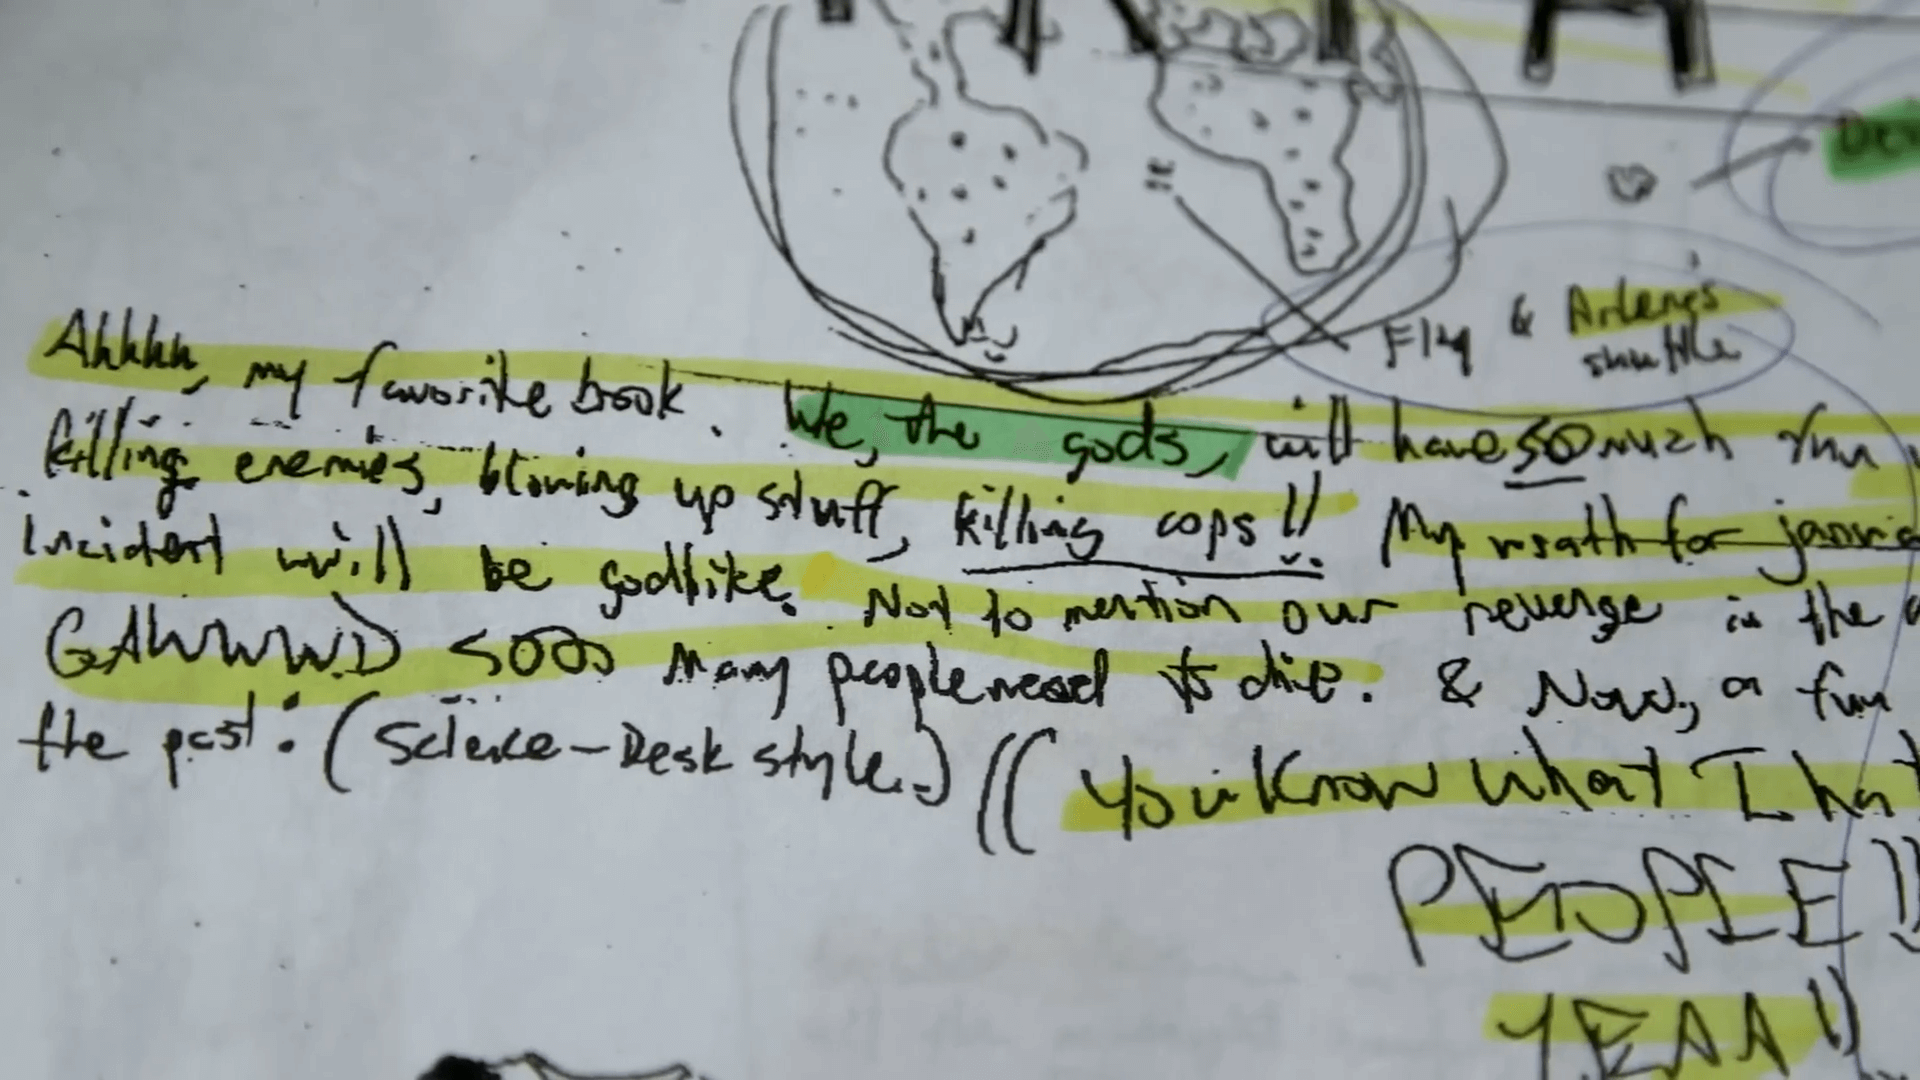 Fly & Arlene's
shuttle
Ahhhh, my favorite book. We, the gods, will have so much fun
killing enemies, blowing up stuff, killing cops!! My wrath for
incident will be godlike. Not to mention our revenge in the
GAWWWD sooo many people need to die. & Now, a fun
the past: (Science-Desk style.) (( You know what I
PEOPLE!!
YEAA!!